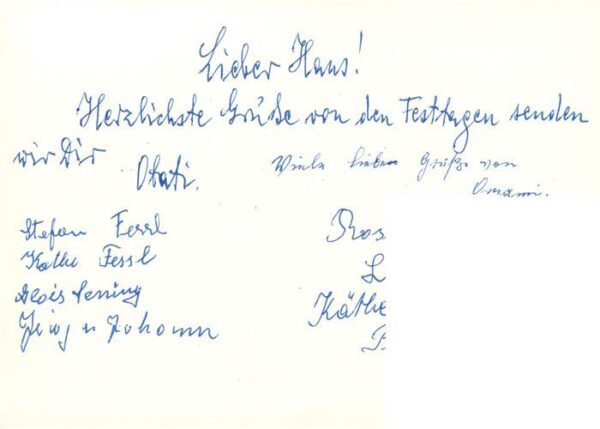 Lieber Hans!
Herzlichste Grüße von den Festtagen senden
wir Dir
Otati.
Viele lieben Grüße von
Omami.
Stefan Fessl
Käthe Fessl
Alois
Johann
Ros
L
Käthe